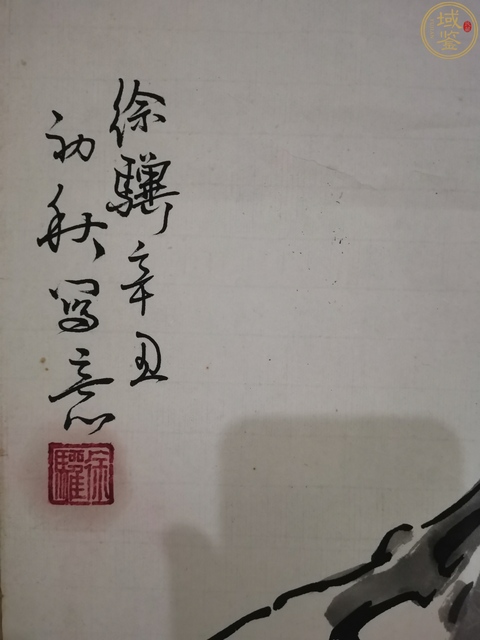 徐辛丑
初秋寫意
徐
域鉴